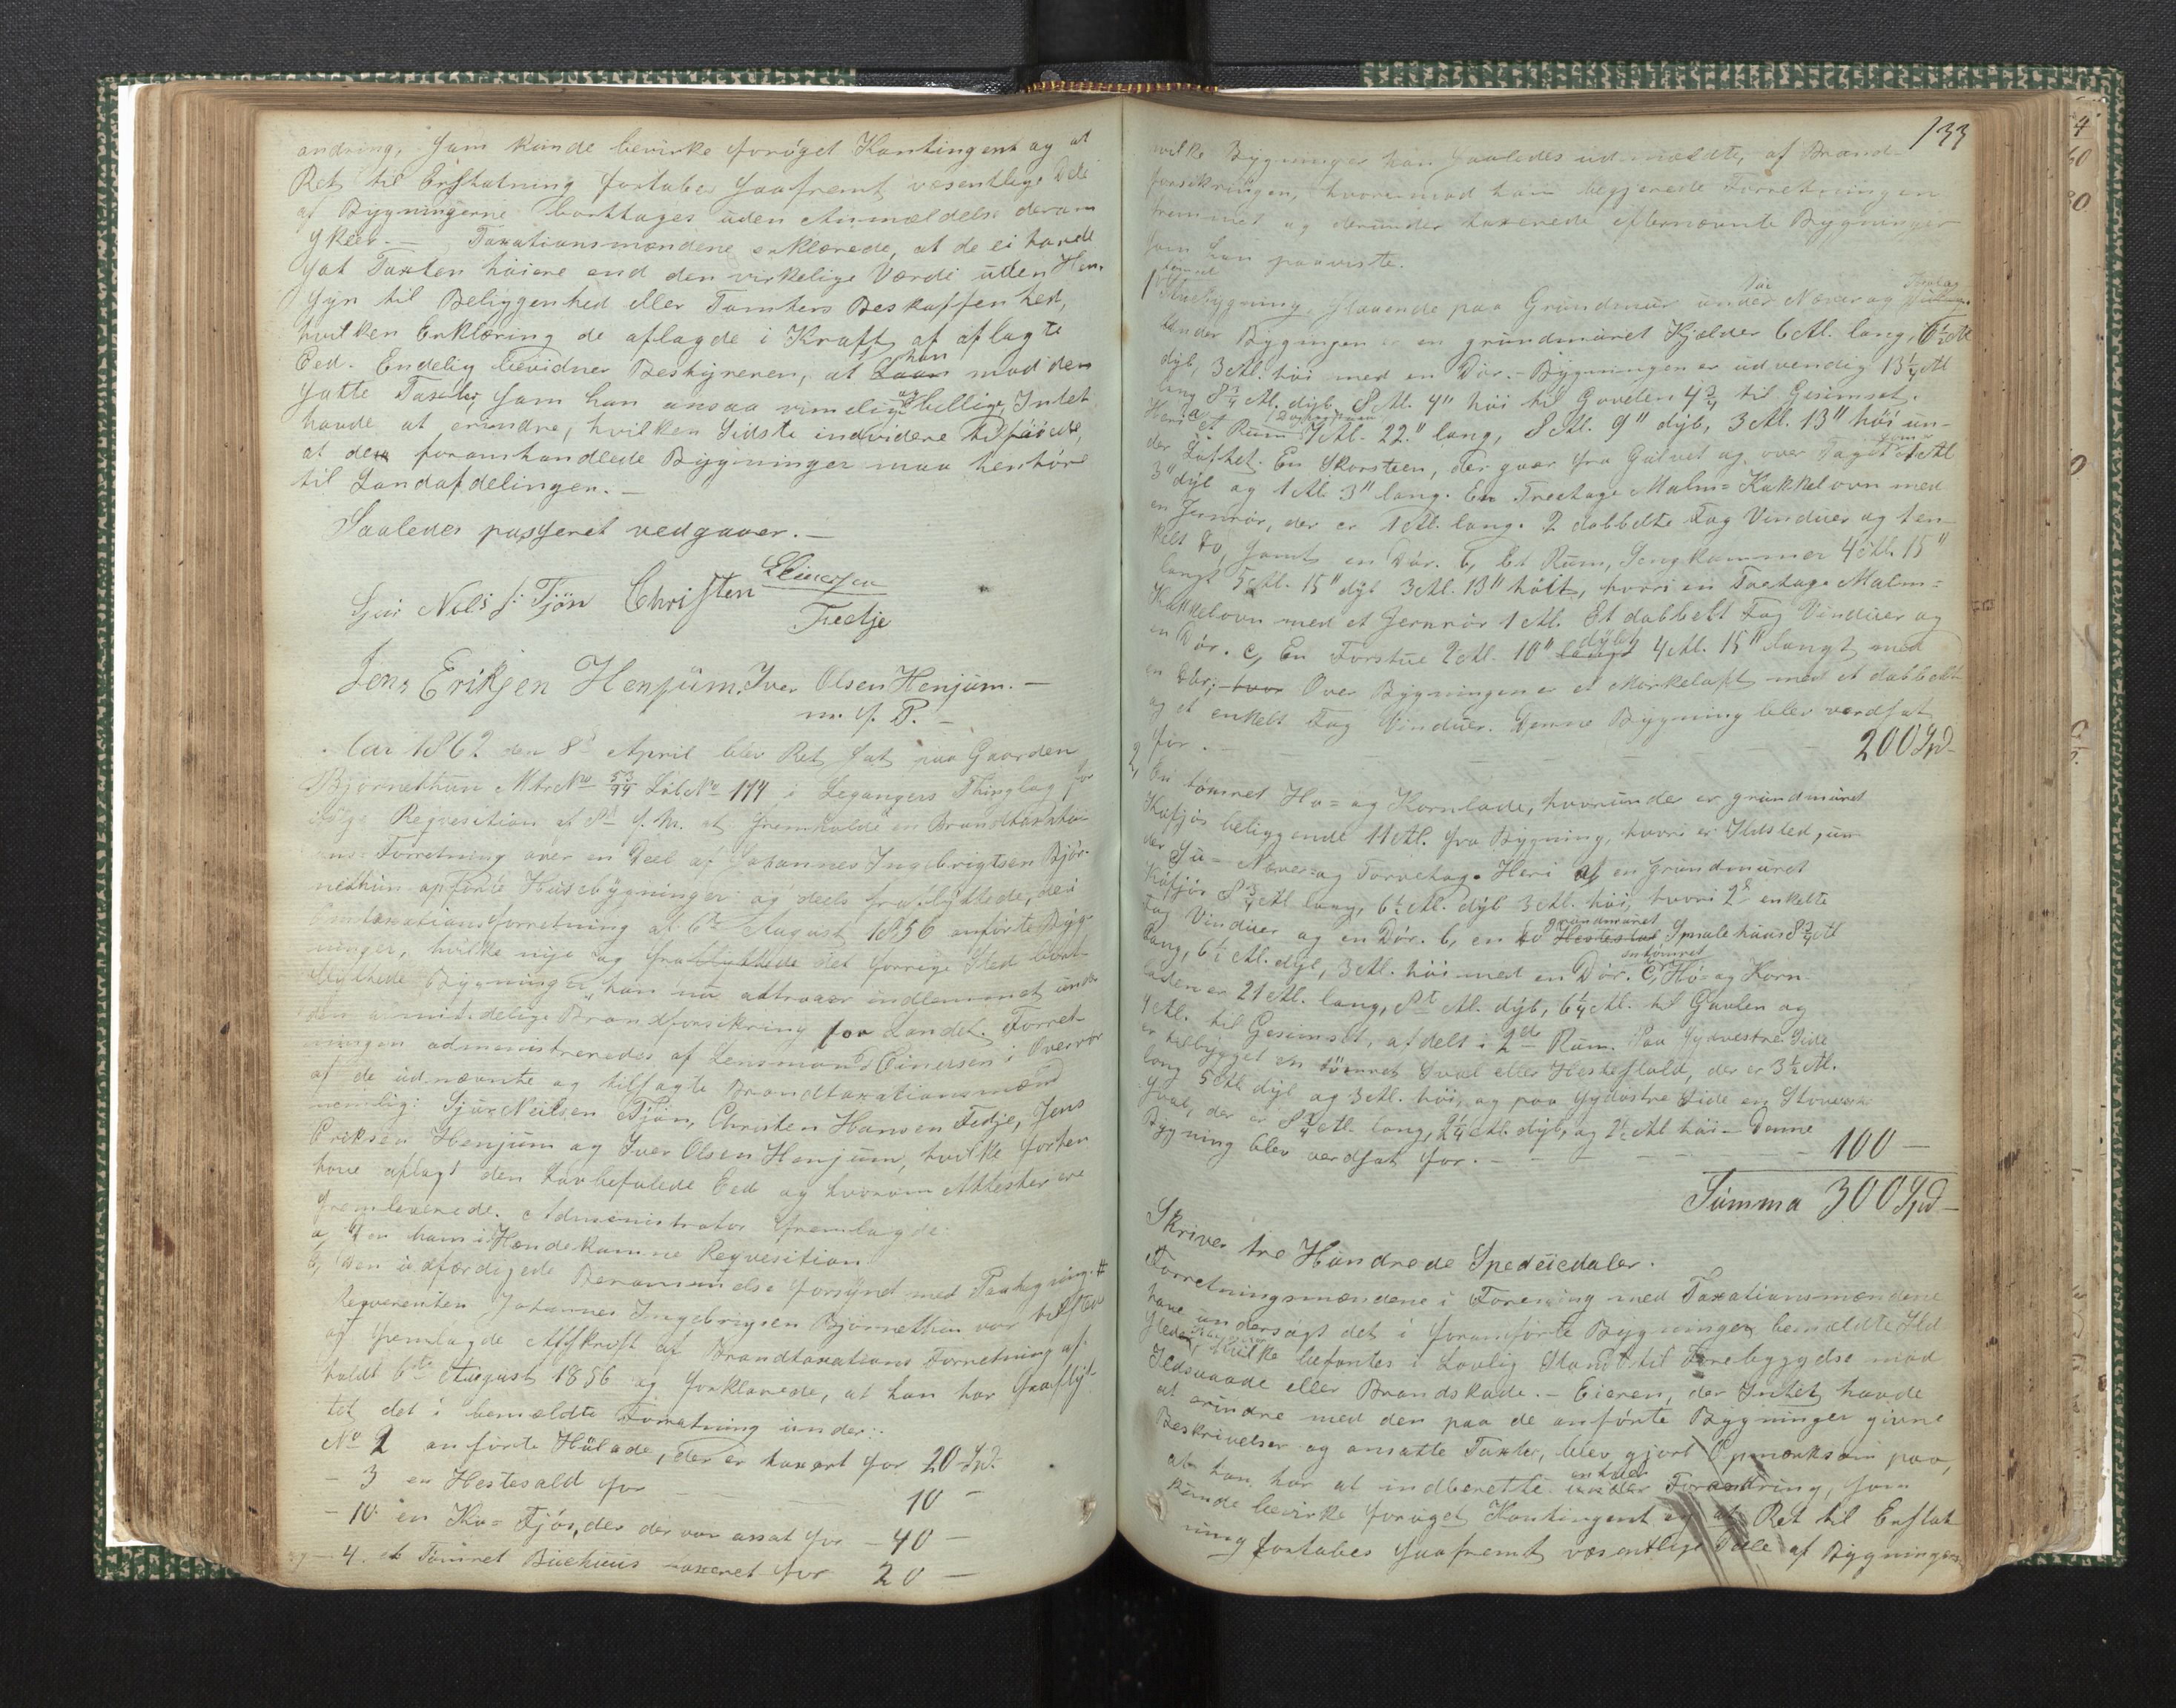 andring, som kunde bevirke forøget Kontingent og at
Ret til Erstatning fortabes saafremt væsentlige Dele
af Bygningerne borttages uden Anmældelse derom
skeer. — Taxationsmændene erklærede, at de ei havde
sat Taxten høiere end den virkelige Værdi uden Hen-
syn til Beliggenhed eller Tomters Beskaffenhed,
hvilken Erklæring de aflagde i Kraft af aflagte
Eed. Endelig bevidner Bestyreren, at han mod den
satte Taxter, som han ansaa rimelig og billige, Intet
havde at erindre, hvilken Sidste indvidere tilføiede,
at de foranhandlede Bygninger maa henhøre
til Landafdelingen. —
Saaledes passeret vedgaaer. —
Sjur Nils s: Tjøn Christen
Fredje
Jens Eriksen Henjum. Iver Olsen Henjum. —
m. f. P. —
Aar 1862 den 8de April blev Ret sat paa Gaarden
Bjørnethun Mtr No 53/94 Løb No 114 i Legangers Thinglag
følge Reqvisition af 8de f. M. at fremholde en Brandtaxta-
ons-Forretning over en Deel af Johannes Ingebrigtsen Bjør-
nethun opførte Huusebygninger og deels fraflyttede, de i
taxationsforretning af 6te August 1856 anførte Byg-
ninger, hvilke nye og fraflyttede det forrige Sted
flyttede Bygninger han nu attraaer indlemmet under
den almindelige Brandforsikring for Landet. Forret-
ningen administreredes af Lensmand Einersen i Overvær
af de udnævnte og tilsagte Brandtaxationsmænd
nemlig: Sjur Nielsen Tjøn, Christen Hansen Fedje, Jens
Eriksen Henjum og Iver Olsen Henjum, hvilke forhen
have aflagt den lovbefalede Eed og hvorom Attester ere
fremleverede. Administrator fremlagde
a, den ham i Hænde komne Reqvisition
b, den udfærdigede Berammelse forsynet med Paategning. #
Reqvirenten Johannes Ingebrigsen Bjørnethun var tilsted
og fremlagde Afskrift af Brandtaxations Forretning af-
holdt 6te August 1856 og forklarede, at han har fraflyt-
tet det i bemældte Forretning under:
No 2 anførte Hølade, der er taxert for 20 Spd.
- 3 en Hestestald for 10 —
- 10 en Ko= Fjøs, der der var ansat for — 40 —
- 4. et Tømret Buehuus taxeret for 20 —
133
hvilke Bygninger han saaledes udmældte, af Brand-
forsikringen, hvoremod han begjerede Forretningen
fremmet og derunder taxerede efternævnte Bygninger
som han paaviste.
1, tømret Stuebygning, staaende paa Grundmuur under Næver og
Under Bygningen er en grundmuret Kjælder 6 Al. lang, 6½ Al
dyb, 3 Al. høi med en Dør. — Bygningen er udvendig 13¼ Al
lang 8¾ Al. dyb 8 Al. 4" høi til Gavelen 4¾ til Gesimset.
Heri a et Rum 7 Al. 22" lang, 8 Al. 9" dyb, 3 Al. 13" høi un-
der Loftet. En Skorsteen, der gaar fra Gulvet og over Taget som er 1 Al
3" dyb og 1 Al. 3" lang. En Treetage Malm= Kakkelovn med
en Jernrør, der er 1 Al. lang. 2 dobbelte Fag Vinduer og 1 en-
kelt do, samt en Dør. b, Et Rum, Sengkammer 4 Al. 15"
langt 5 Al. 15" dyb 3 Al. 13" høit, hvori en Toetage Malm=
Kakkelovn med et Jernrør 1 Al. Et dobbelt Fag Vinduer og
en Dør. c, En Forstue 2 Al. 10" dybt 4 Al. 15" langt med
en Dør; hvor Over Bygningen er et Mørkeloft med et dobbelt
og et enkelt Fag Vinduer. Denne Bygning blev værdsat
for. — — — 200 Spd
2, En tømret Hø= og Kornlade, hvorunder er grundmuret
Køfjøs beliggende 11 Al. fra Bygning, hvori er Ildsted, un-
der Su= Næver= og Torvetag. Heri a, en Grundmuret
Køfjøs 8¾ Al lang, 6½ Al. dyb 3 Al. høi, hvori 2de enkelte
Fag Vinduer og en Dør. b, en grundmuret Hestestal, Smalehuus 8¾ Al
lang, 6½ Al. dyb, 3 Al. høi med en Dør. c, en tømret Hø= og Korn-
laden er 21 Al. lang, 8½ Al. dyb, 6¼ Al. til Gavlen og
4 Al. til Gesimset, afdelt i 2de Rum. Paa Sydvestre Side
er tilbygget en tømret Sval eller Hestestald, der er 3½ Al.
lang 5 Al dyb og 3 Al. høi, og paa Sydøstre Side en
Sval, der er 8¾ Al. lang, 2¼ Al. dyb, og 2½ Al høi — Denne
Bygning blev værdsat for. — — — 100 —
Summa 300 Spd —
Skriver tre Hundrede Speciedaler.
Forretningsmændene i Forening med Taxationsmændene
have undersøgt det i foranførte Bygninger bemældte Ild-
steder, hvilke befantes i Lovlig Stand til Forebyggelse mod
Ildsvaade eller Brandskade. — Eieren, der Intet havde
at erindre med den paa de anførte Bygninger givne
Beskrivelser og ansatte Taxter, blev gjort Opmærksom paa,
at han har at indberette enhver Forandring, som
kunde bevirke forøget Kontingent og at Ret til Erstat-
ning fortabes saafremt væsentlige Dele af Bygningerne